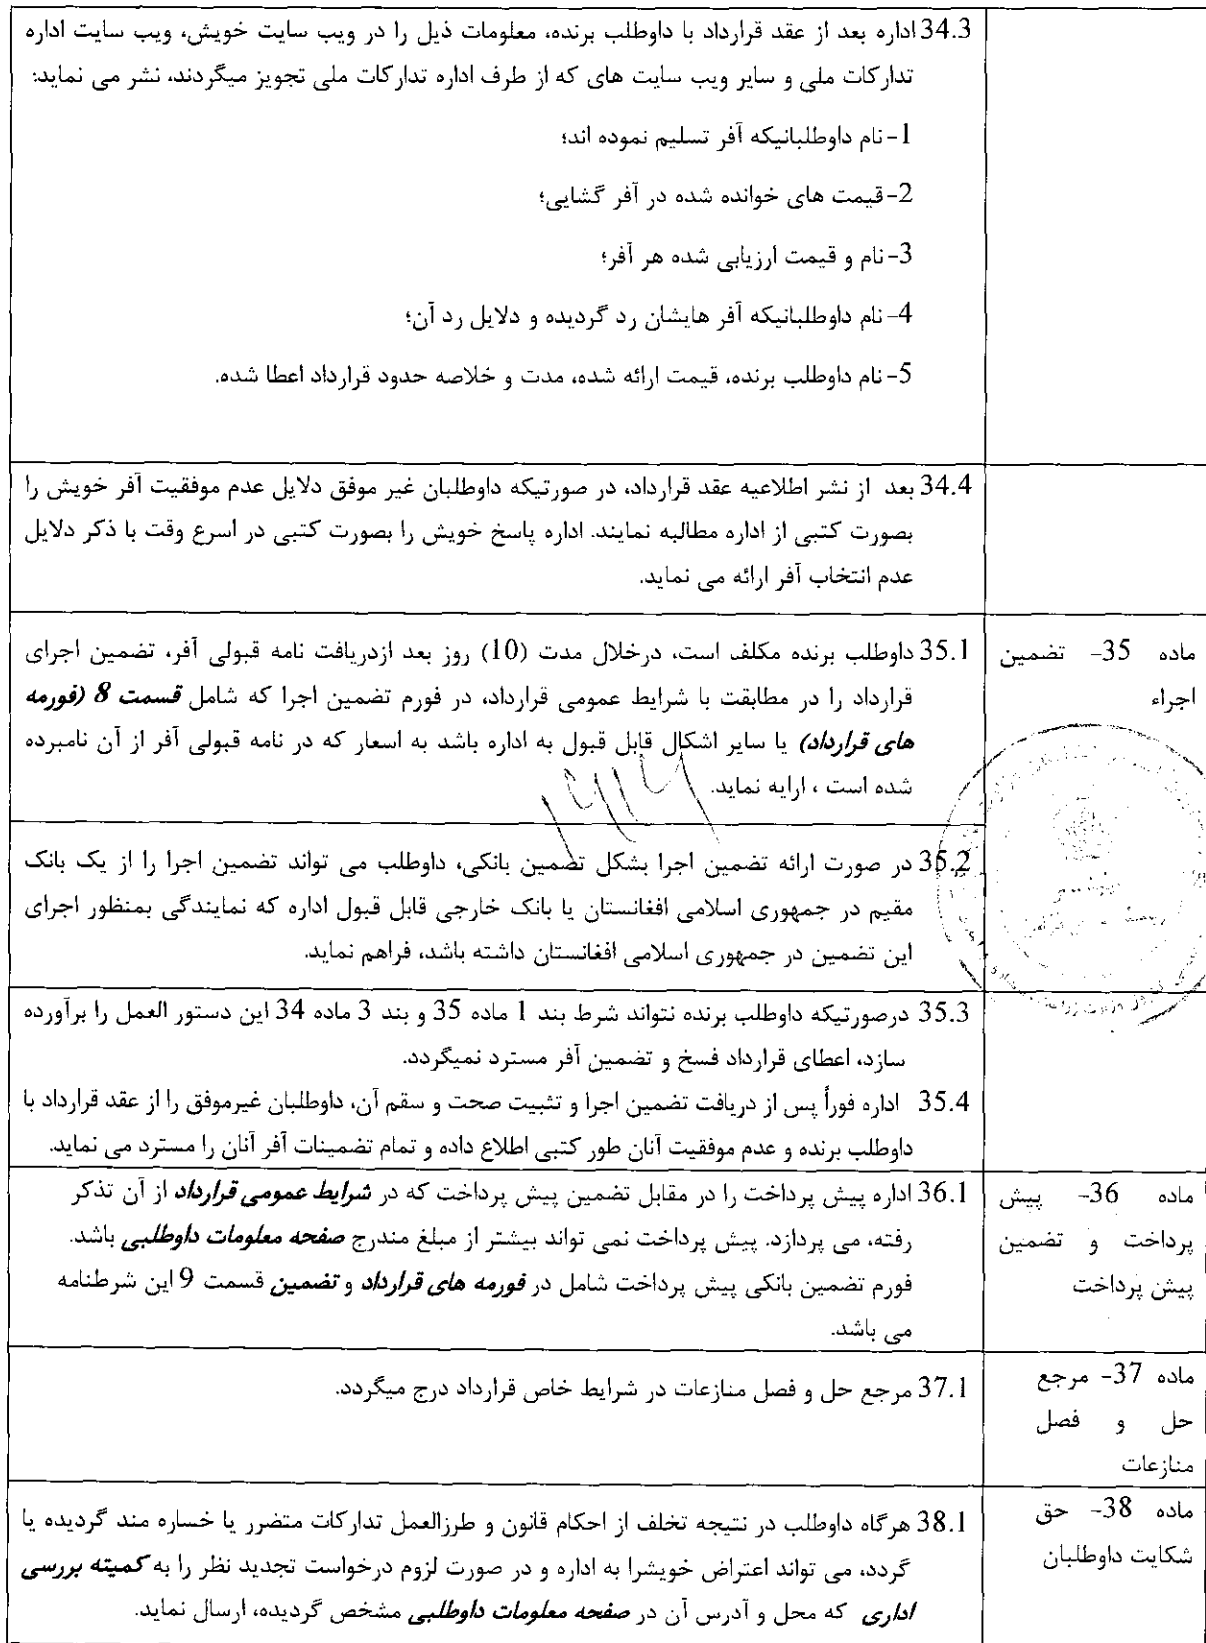 34.3 اداره بعد از عقد قرارداد با داوطلب برنده، معلومات ذیل را در ویب سایت خویش، ویب سایت اداره
تدارکات ملی و سایر ویب سایت های که از طرف اداره تدارکات ملی تجویز میگردند، نشر می نماید:
1-نام داوطلبانیکه آفر تسلیم نموده اند؛
2-قیمت های خوانده شده در آفر گشایی؛
3-نام و قیمت ارزیابی شده هر آفر؛
4-نام داوطلبانیکه آفر هایشان رد گردیده و دلایل رد آن؛
5-نام داوطلب برنده، قیمت ارائه شده، مدت و خلاصه حدود قرارداد اعطا شده.
34.4 بعد از نشر اطلاعیه عقد قرارداد، در صورتیکه داوطلبان غیر موفق دلایل عدم موفقیت آفر خویش را
بصورت کتبی از اداره مطالبه نمایند. اداره پاسخ خویش را بصورت کتبی در اسرع وقت با ذکر دلایل
عدم انتخاب آفر ارائه می نماید.
ماده 35- تضمین
اجراء
35.1 داوطلب برنده مکلف است، درخلال مدت (10) روز بعد ازدریافت نامه قبولی آفر، تضمین اجرای
قرارداد را در مطابقت با شرایط عمومی قرارداد، در فورم تضمین اجرا که شامل قسمت 8 (فورمه
های قرارداد) یا سایر اشکال قابل قبول به اداره باشد به اسعار که در نامه قبولی آفر از آن نامبرده
شده است ، ارایه نماید.
35.2 در صورت ارائه تضمین اجرا بشکل تضمین بانکی، داوطلب می تواند تضمین اجرا را از یک بانک
مقیم در جمهوری اسلامی افغانستان یا بانک خارجی قابل قبول اداره که نمایندگی بمنظور اجرای
این تضمین در جمهوری اسلامی افغانستان داشته باشد، فراهم نماید.
35.3 درصورتیکه داوطلب برنده نتواند شرط بند 1 ماده 35 و بند 3 ماده 34 این دستور العمل را برآورده
سازد، اعطای قرارداد فسخ و تضمین آفر مسترد نمیگردد.
35.4 اداره فوراً پس از دریافت تضمین اجرا و تثبیت صحت و سقم آن، داوطلبان غیرموفق را از عقد قرارداد با
داوطلب برنده و عدم موفقیت آنان طور کتبی اطلاع داده و تمام تضمینات آفر آنان را مسترد می نماید.
ماده 36- پیش
پرداخت و تضمین
پیش پرداخت
36.1 اداره پیش پرداخت را در مقابل تضمین پیش پرداخت که در شرایط عمومی قرارداد از آن تذکر
رفته، می پردازد. پیش پرداخت نمی تواند بیشتر از مبلغ مندرج صفحه معلومات داوطلبی باشد.
فورم تضمین بانکی پیش پرداخت شامل در فورمه های قرارداد و تضمین قسمت 9 این شرطنامه
می باشد.
ماده 37- مرجع
حل و فصل
منازعات
37.1 مرجع حل و فصل منازعات در شرایط خاص قرارداد درج میگردد.
ماده 38- حق
شکایت داوطلبان
38.1 هرگاه داوطلب در نتیجه تخلف از احکام قانون و طرزالعمل تدارکات متضرر یا خساره مند گردیده یا
گردد، می تواند اعتراض خویشرا به اداره و در صورت لزوم درخواست تجدید نظر را به کمیته بررسی
اداری که محل و آدرس آن در صفحه معلومات داوطلبی مشخص گردیده، ارسال نماید.